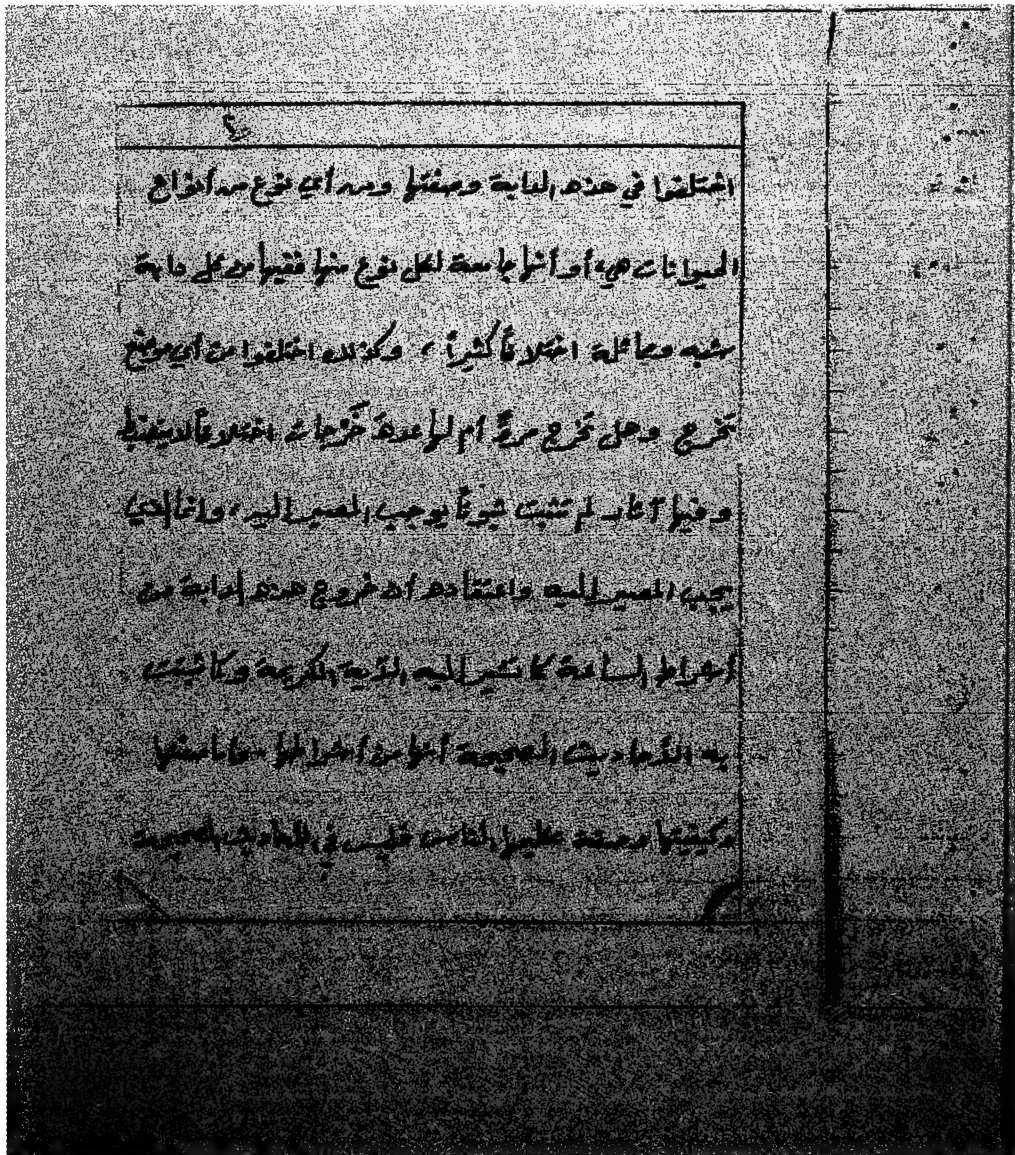 ٤
اختلفوا في هذه الدابة وصفتها ومن أي نوع من أنواع
الحيوانات هي، أو أنها جامعة لكل نوع منها ففيها من كل دابة
شبه ومماثلة اختلافاً كثيراً ، وكذلك اختلفوا من أي موضع
تخرج وهل تخرج مرةً أم لها عدة خَرْجات اختلافاً لا ينضبط
وفيها آثار لم تثبت ثبوتاً يوجب المصير إليه ، وإنما الذي
يجب المصير إليه واعتقاده أن خروج هذه الدابة من
أشراط الساعة كما تشير إليه الآية الكريمة وكما ثبتت
به الأحاديث الصحيحة أنها من أشراطها
وكيفيتها وصفة الناس فليس في الأحاديث الصحيحة